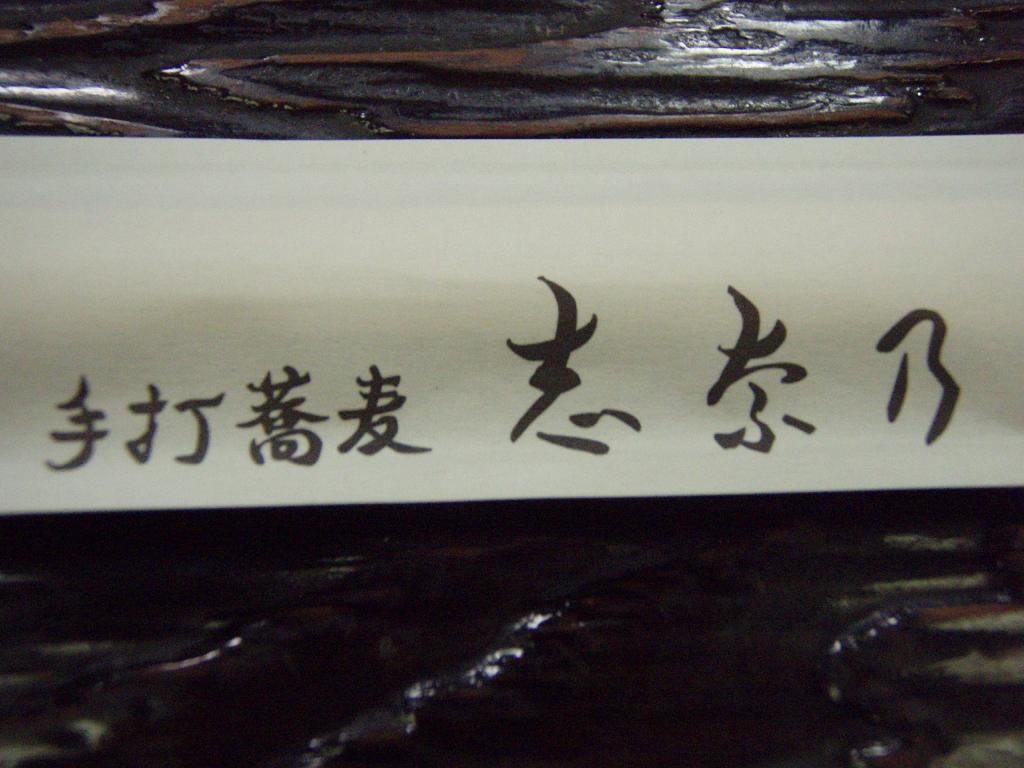 手打蕎麦 志奈乃